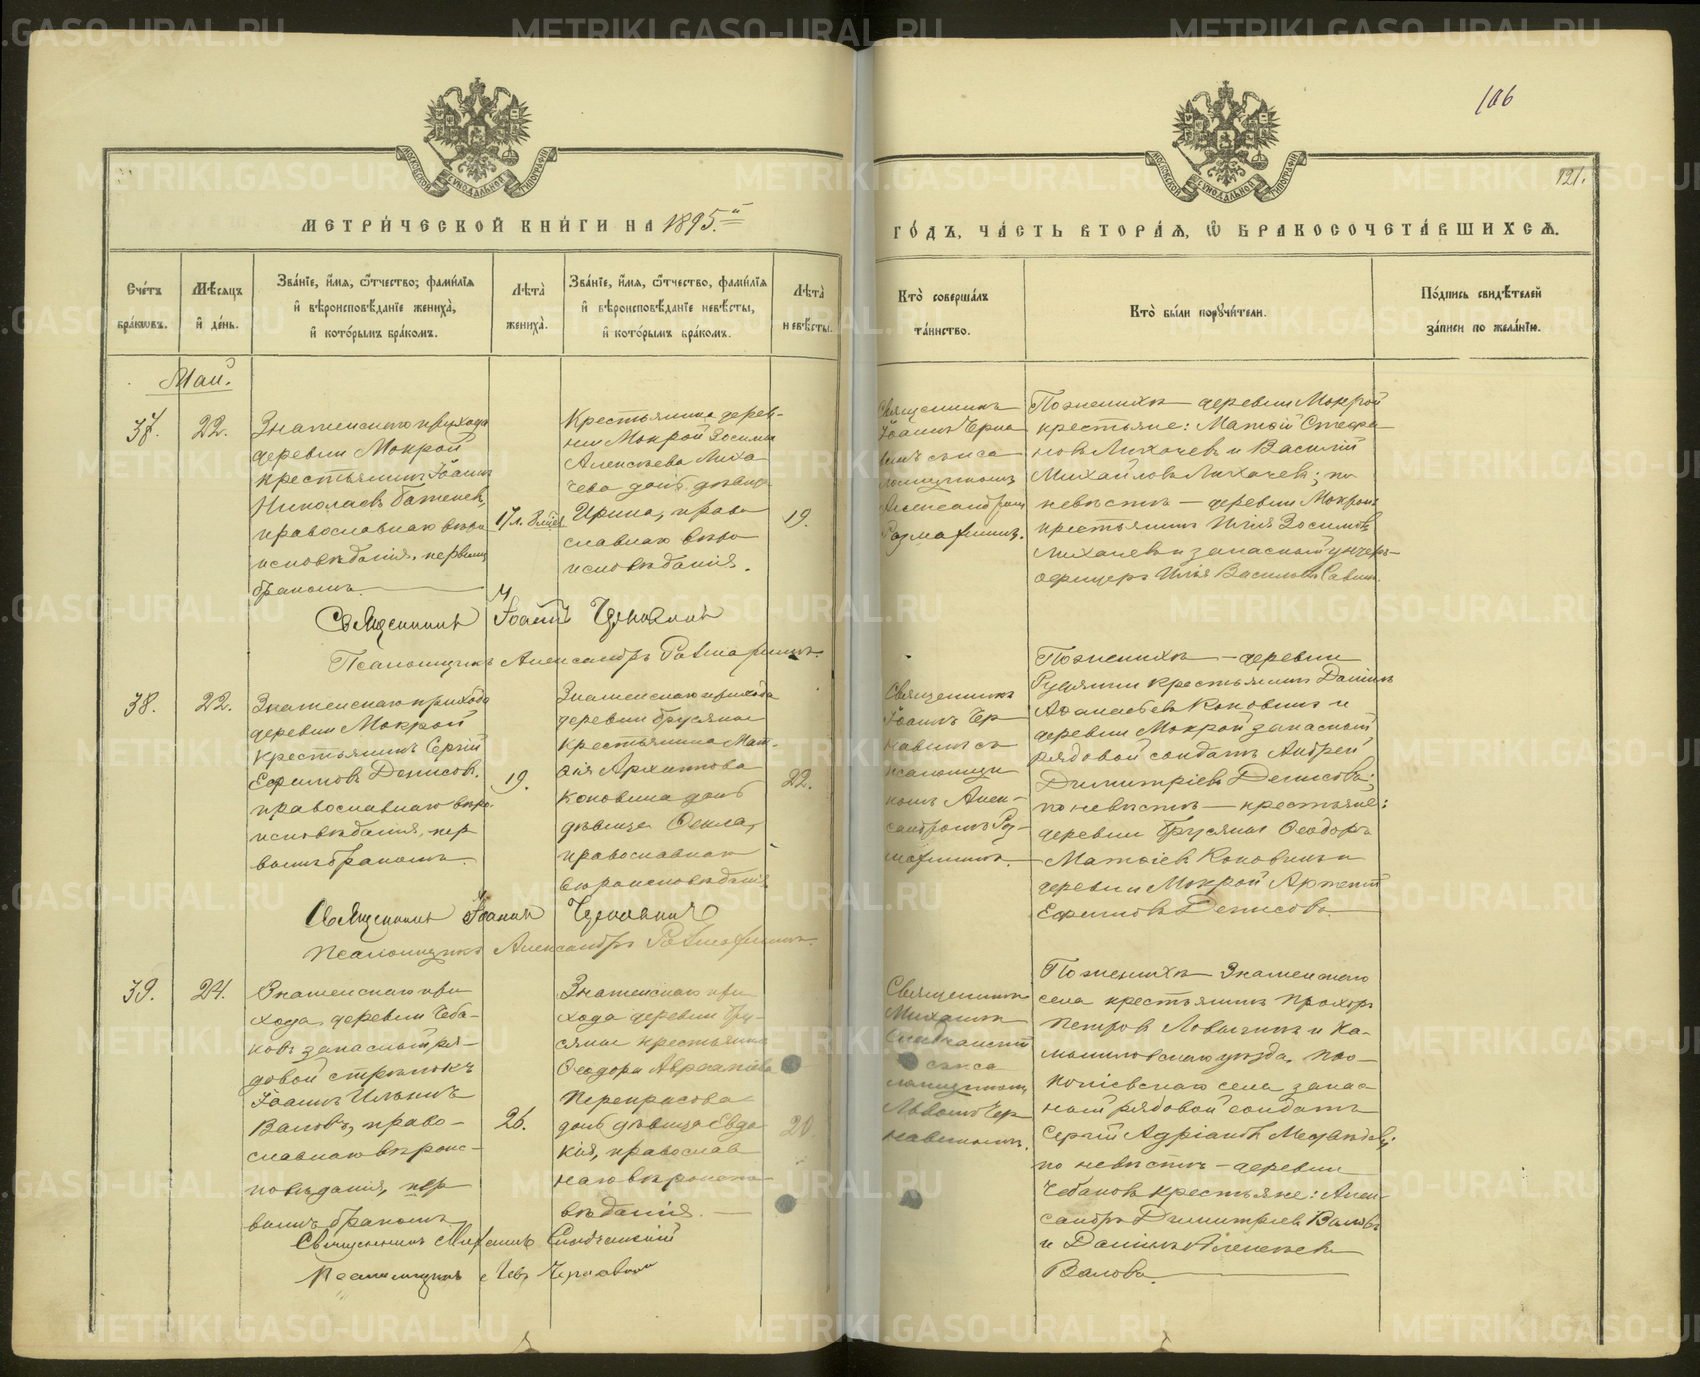 106
121.
МЕТРИ́ЧЕСКОЙ КНИ́ГИ НА 1895.й
ГО́ДЪ, ЧА́СТЬ ВТОРА́Ѧ, Ѽ БРАКОСОЧЕТА́ВШИХСѦ.
МОСКОВСКОЙ СѴНОДАЛЬНОЙ ТИПОГРАФІИ
МОСКОВСКОЙ СѴНОДАЛЬНОЙ ТИПОГРАФІИ
Сче́тъ
бра́кѡвъ.
Мѣ́сяцъ
и҆ де́нь.
Зва́нїе, и҆́мѧ, ѻ҆́тчество, фами́лїѧ
и҆ вѣроисповѣ́данїе жениха̀,
и҆ кото́рымъ бра́комъ.
Лѣта̀
жениха̀.
Зва́нїе, и҆́мѧ, ѻ҆́тчество, фами́лїѧ
и҆ вѣроисповѣ́данїе невѣ́сты,
и҆ кото́рымъ бра́комъ.
Лѣта̀
невѣ́сты.
Кто̀ соверша́лъ
та́инство.
Кто̀ бы́ли порꙋчи́тели.
По́дпись свидѣ́телей
за́писи по жела́нїю.
Май.
37.
22.
Знаменскаго прихода
деревни Мокрой
крестьянинъ Іоаннъ
Николаевъ Баженовъ,
православнаго вѣро
исповѣданія, первымъ
бракомъ.
17 л.
Крестьянина дерев-
ни Мокрой Зосимы
Алексѣева Лиха
чева дочь дѣвица
Ирина, право
славнаго вѣро
исповѣданія.
19.
Священникъ
Іоаннъ Черна
винъ съ пса
ломщикомъ
Александромъ
По женихѣ деревни Мокрой
крестьяне: Матѳій Стефа
новъ Лихачевъ и Василій
Михайловъ Лихачевъ; по
невѣстѣ — деревни Мокрой
крестьянинъ Илія Зосимовъ
Лихачевъ и запасный унтеръ-
офицеръ Илья Васильевъ
Священникъ Іоаннъ Чернавинъ
Псаломщикъ Александръ
38.
22.
Знаменскаго прихода
деревни Мокрой
крестьянинъ Сергій
Ефимовъ Денисовъ,
православнаго вѣро
исповѣданія, пер
вымъ бракомъ.
19.
Знаменскаго прихода
деревни Брусяны
крестьянина Мат-
ѳія Архиппова
Коковина дочь
дѣвица Ѳекла,
православнаго
вѣроисповѣданія.
22.
Священникъ
Іоаннъ Чер
навинъ съ
псаломщи
комъ Алек-
сандромъ
По женихѣ — деревни
крестьянинъ Даніилъ
Аѳанасьевъ Коковинъ и
деревни Мокрой запасный
рядовой солдатъ Андрей
Димитріевъ Денисовъ;
по невѣстѣ — крестьяне:
деревни Брусяны Ѳеодоръ
Матѳіевъ Коковинъ и
деревни Мокрой
Ефимовъ Денисовъ
Священникъ Іоаннъ Чернавинъ
Псаломщикъ Александръ
39.
24.
Знаменскаго при
хода, деревни Чеба-
ковъ запасный ря-
довой стрѣлокъ
Іоаннъ Ильинъ
Валовъ, право-
славнаго вѣроис-
повѣданія, пер
вымъ бракомъ
26.
Знаменскаго при
хода деревни Бру-
сяны крестьянина
Ѳеодора Авраамова
дочь дѣвица Евдо
кія, православ
наго вѣроиспо
вѣданія.
20.
Священникъ
Михаилъ
съ пса
ломщикомъ
Львомъ Чер
навинымъ.
По женихѣ Знаменскаго
села крестьянинъ Прохоръ
Петровъ и Ка-
мышловскаго уѣзда,
села запас
ный рядовой солдатъ
Сергій Адріановъ Медвѣдевъ;
по невѣстѣ — деревни
Чебаковъ крестьяне: Алек-
сандръ Димитріевъ Валовъ
и Даніилъ Алексѣевъ
Валовъ.
Священникъ Михаилъ
Псаломщикъ Левъ Чернавинъ
METRIKI.GASO-URAL.RU